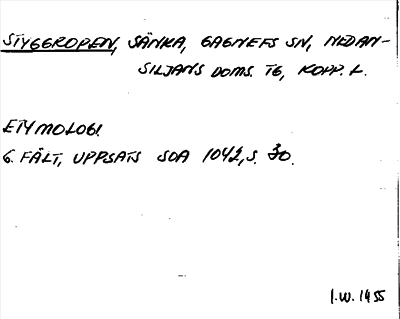 STYGGROPEN, SÄNKA, GAGNEFS SN, NEDAN-
SILJANS DOMS. TG, KOPP. L.
ETYMOLOGI
G. FÄLT, UPPSATS SOA 1042, S. 30.
I.W. 1955